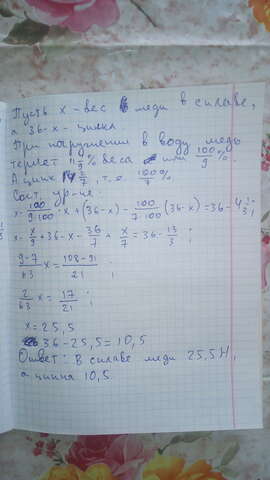 Пусть x - вес меди в сплаве,
а 36-x - цинка.
При погружении в воду медь
теряет 11 1/9 % веса или 100/9 %.
А цинк 14 2/7, т.е. 100/7 %
Сост. ур-ие:
x - 100/(9·100) · x + (36-x) - 100/(7·100) (36-x) = 36 - 4 1/3;
x - x/9 + 36 - x - 36/7 + x/7 = 36 - 13/3;
(9-7)/63 x = (108-91)/21;
2/63 x = 17/21;
x = 25,5
36 - 25,5 = 10,5
Ответ: В сплаве меди 25,5 Н,
а цинка 10,5.